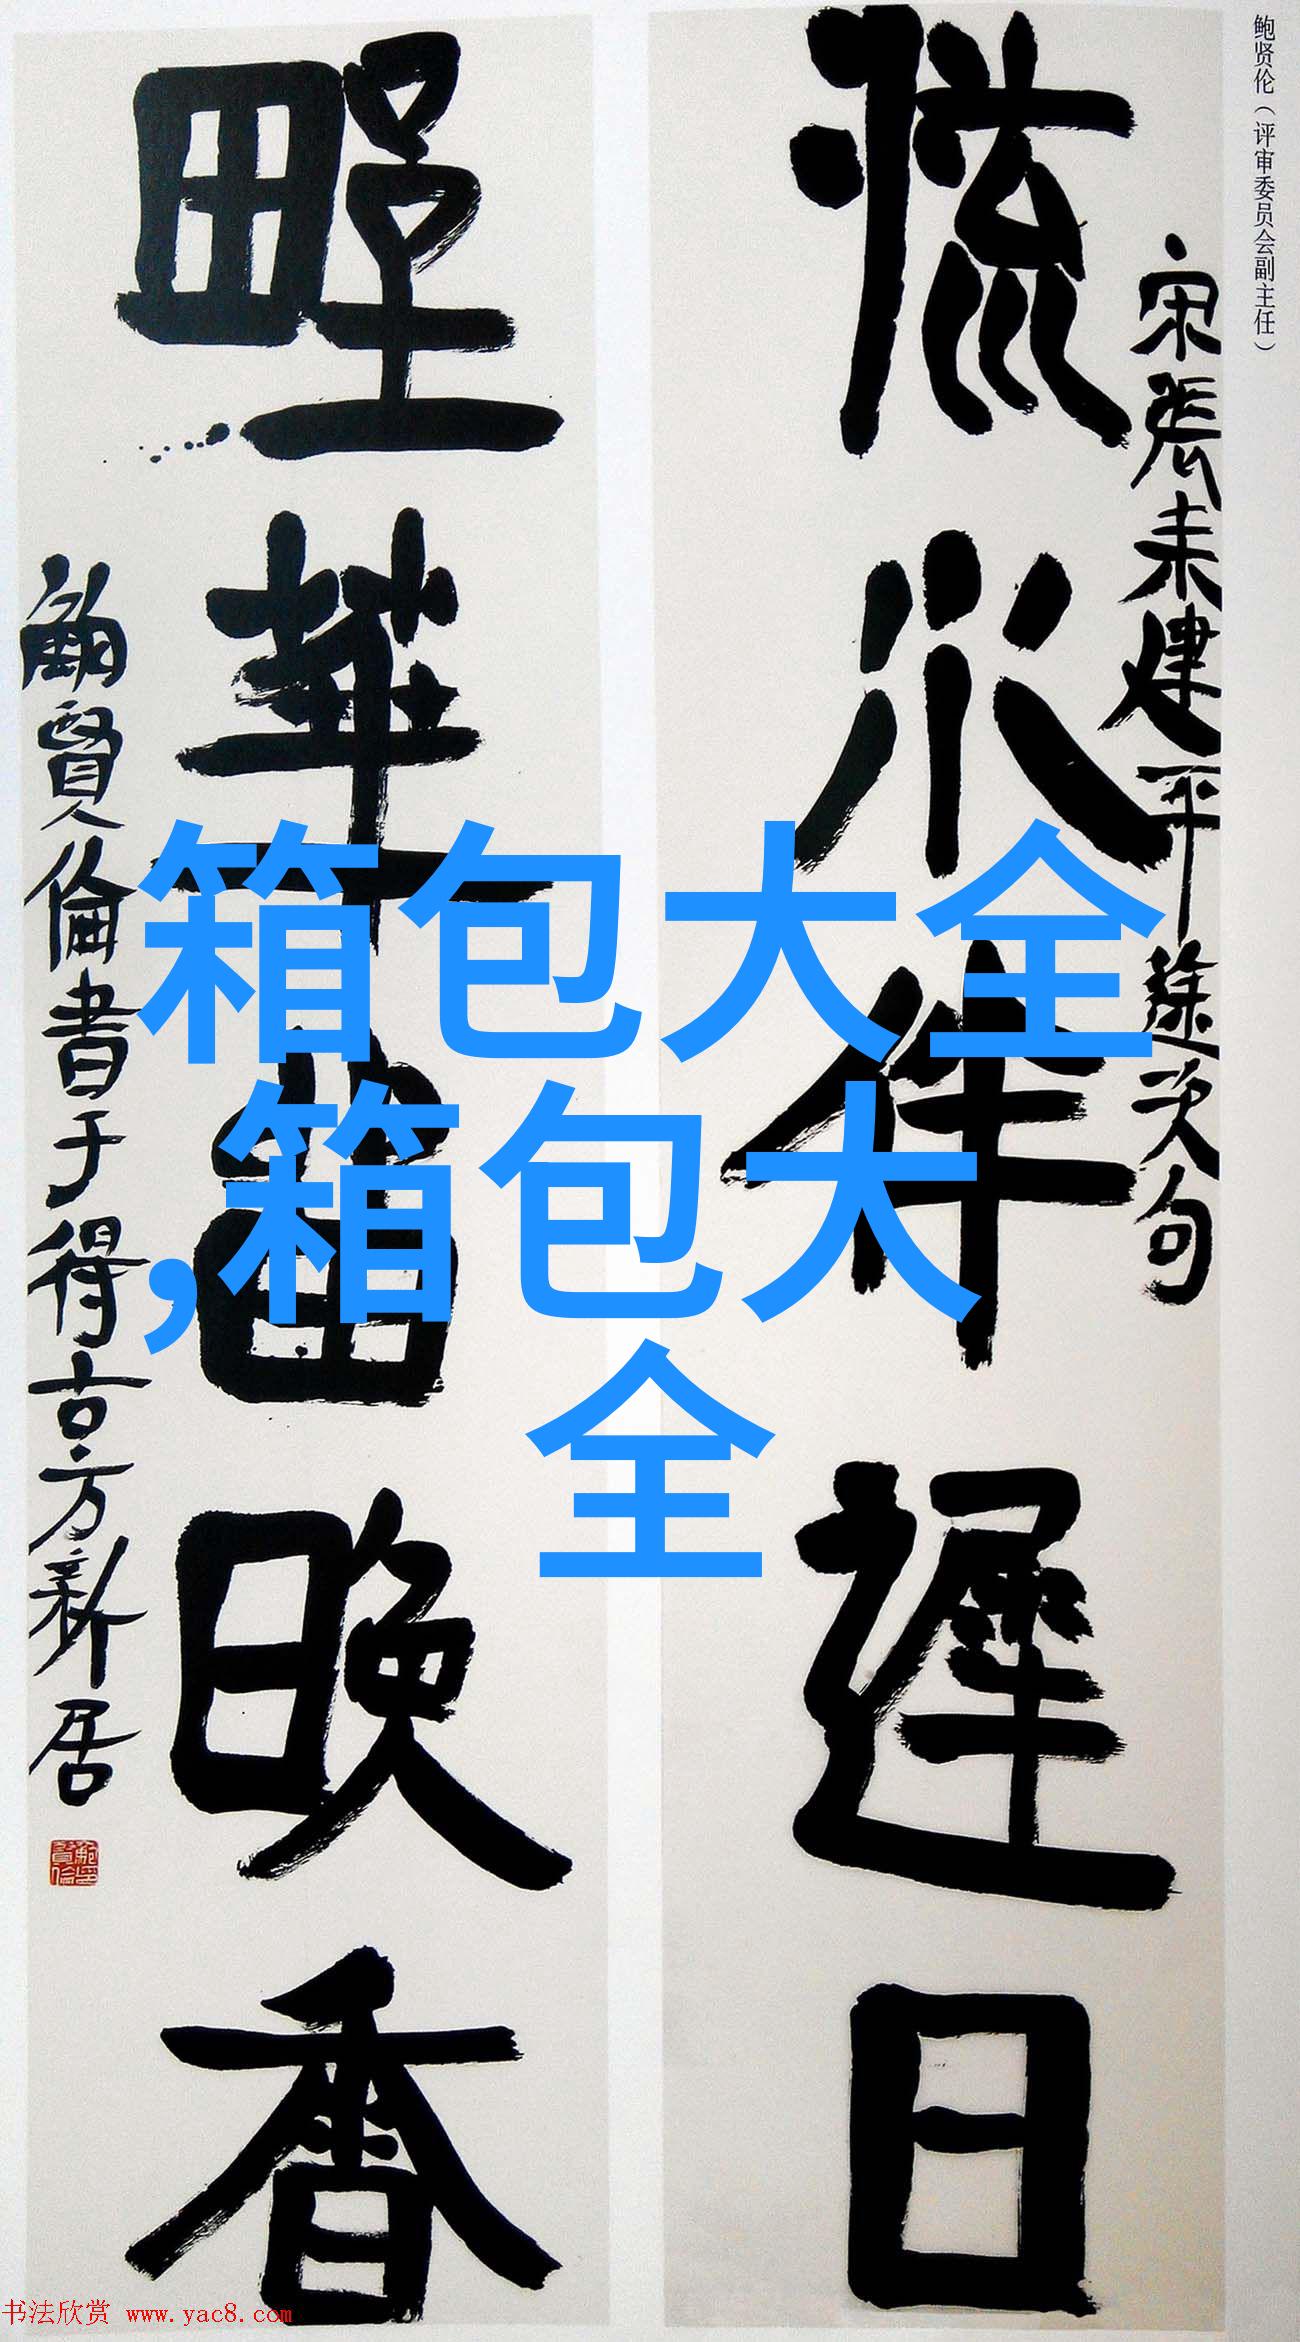 鲍贤伦（评审委员会副主任）
宋張耒建平途次句
流水伴遲日
野華留晚香
鮑賢倫書于得古方新居
箱包大全
,箱包大
全
书法欣赏 www.yac8.com